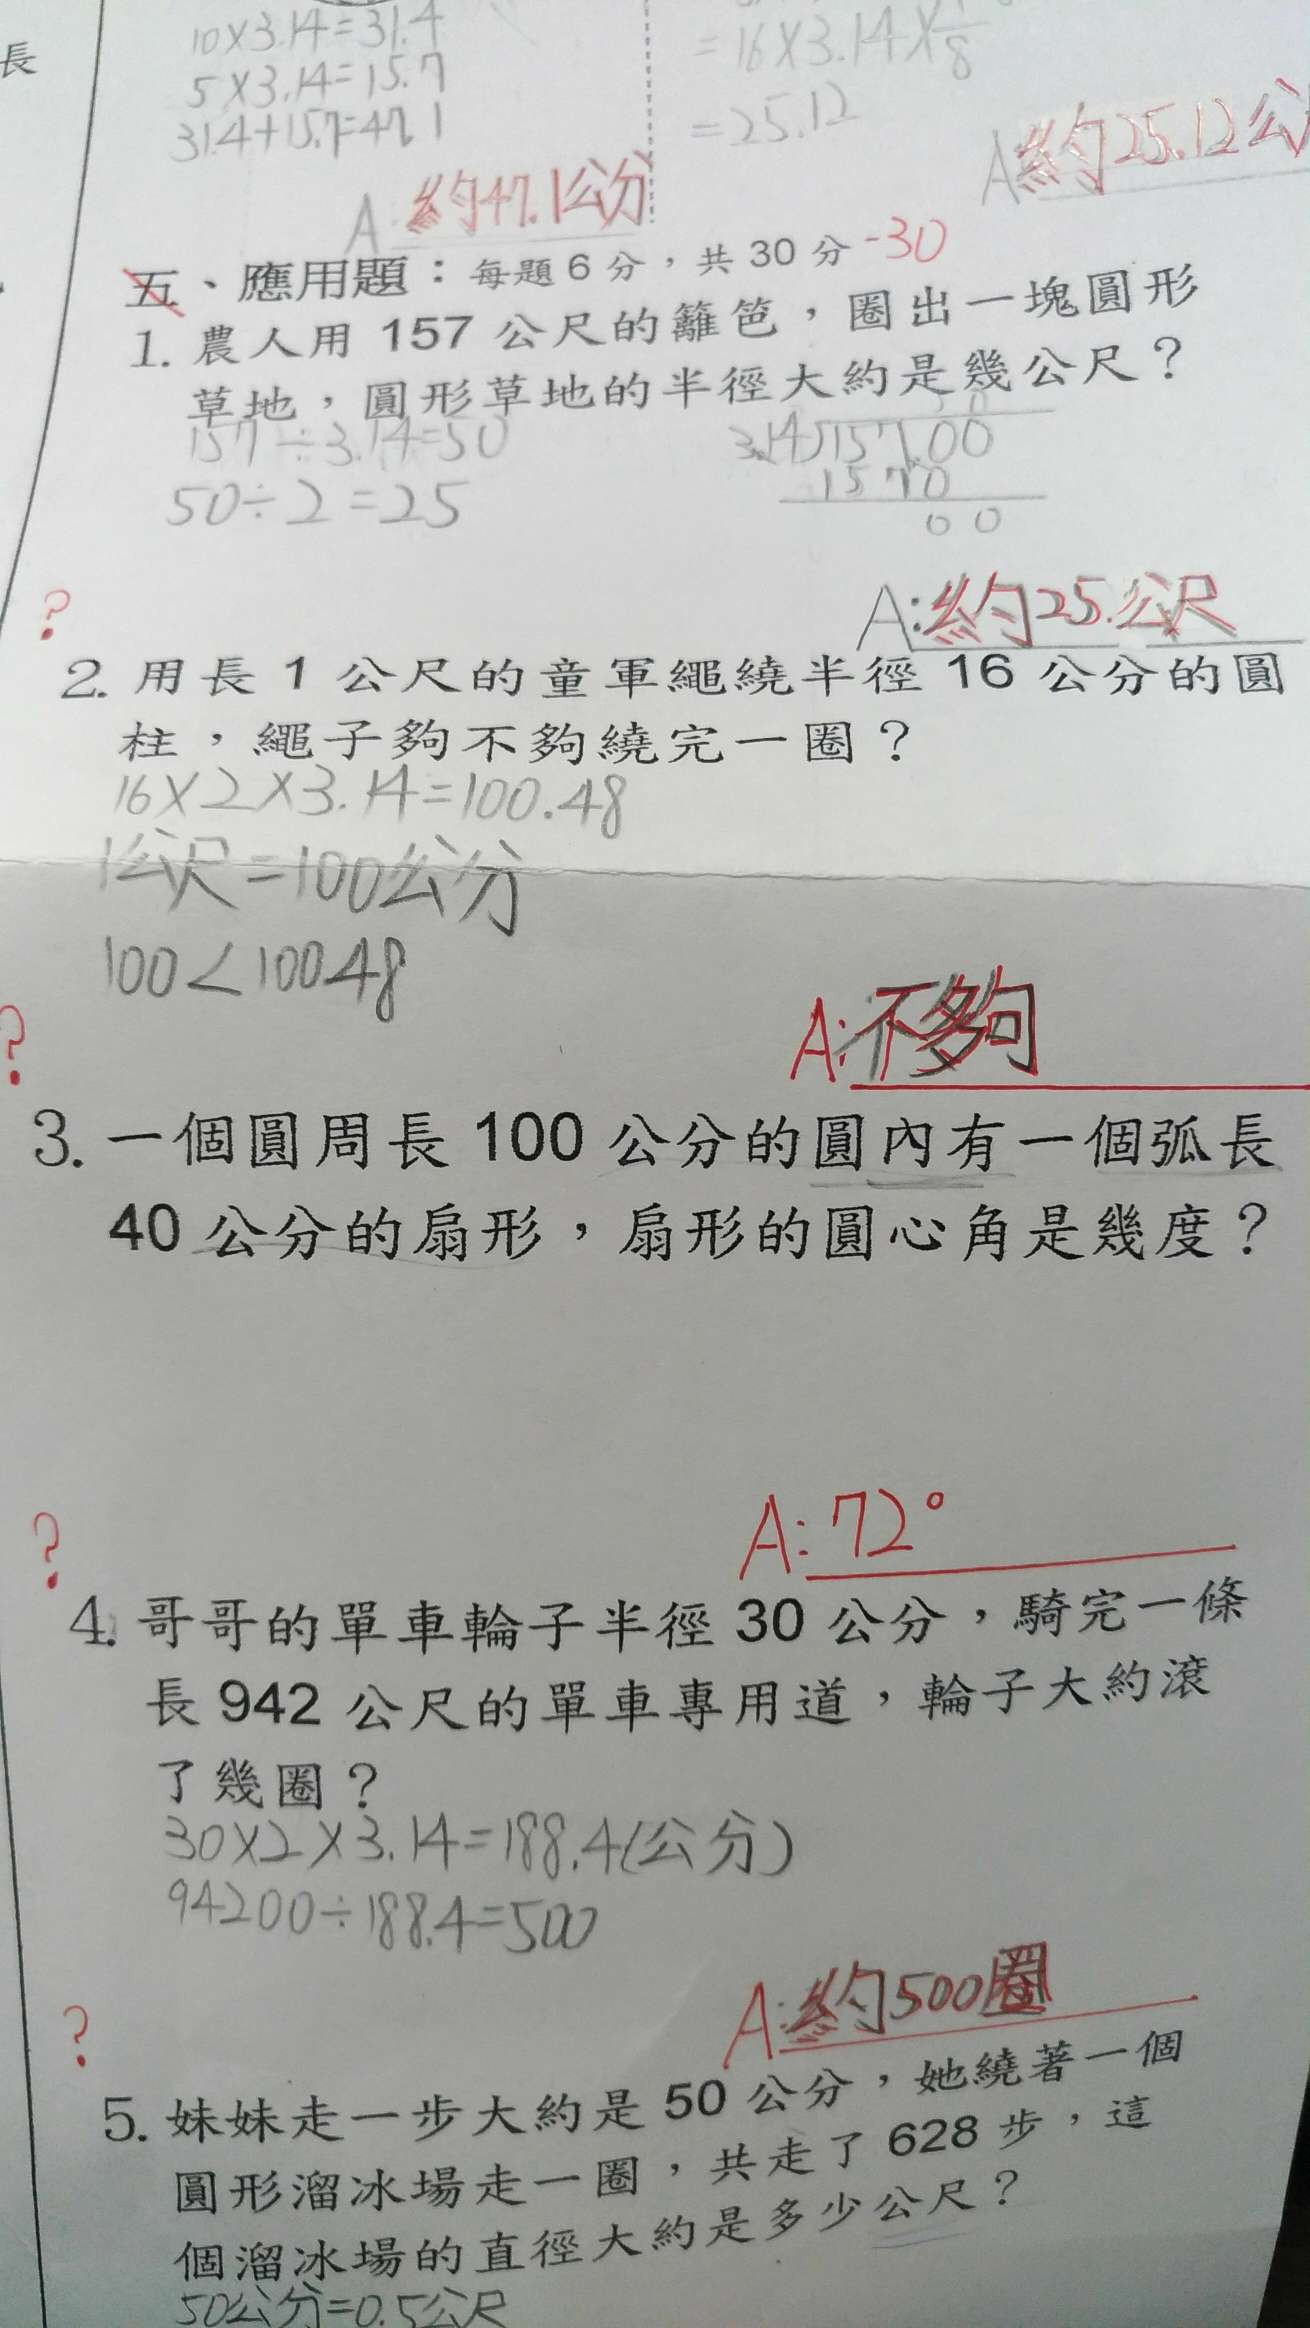 長
10×3.14=31.4
5×3.14=15.7
31.4+15.7=47.1
A:約47.1公分
=16×3.14×1/8
=25.12
A約25.12公
五、應用題：每題6分，共30分 -30
1. 農人用 157 公尺的籬笆，圈出一塊圓形
草地，圓形草地的半徑大約是幾公尺？
157÷3.14=50
50÷2=25
50
3.14)157.00
1570
00
A:約25公尺
?
2. 用長 1 公尺的童軍繩繞半徑 16 公分的圓
柱，繩子夠不夠繞完一圈？
16×2×3.14=100.48
1公尺=100公分
100<100.48
A:不夠
?
3. 一個圓周長 100 公分的圓內有一個弧長
40 公分的扇形，扇形的圓心角是幾度？
A:72°
?
4. 哥哥的單車輪子半徑 30 公分，騎完一條
長 942 公尺的單車專用道，輪子大約滾
了幾圈？
30×2×3.14=188.4(公分)
94200÷188.4=500
A:約500圈
?
5. 妹妹走一步大約是 50 公分，她繞著一個
圓形溜冰場走一圈，共走了 628 步，這
個溜冰場的直徑大約是多少公尺？
50公分=0.5公尺